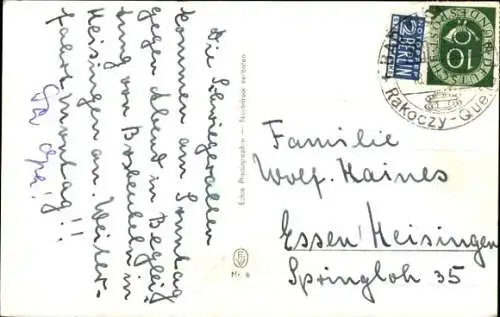 Die Schwiegeralten
kommen am Sonntag
gegen Abend in Beglei-
tung von Bockenheim in
Heisingen an. Weiter-
fahrt Montag!!
Opa!
Echte Photographie — Nachdruck verboten
Nr. 6
NOTOPFER
2 BERLIN
STEUERMARKE
DEUTSCHE BUNDESPOST
10
BAD
Rakoczy-Quelle
Familie
Wolf. Haines
Essen/Heisingen
Springloh 35